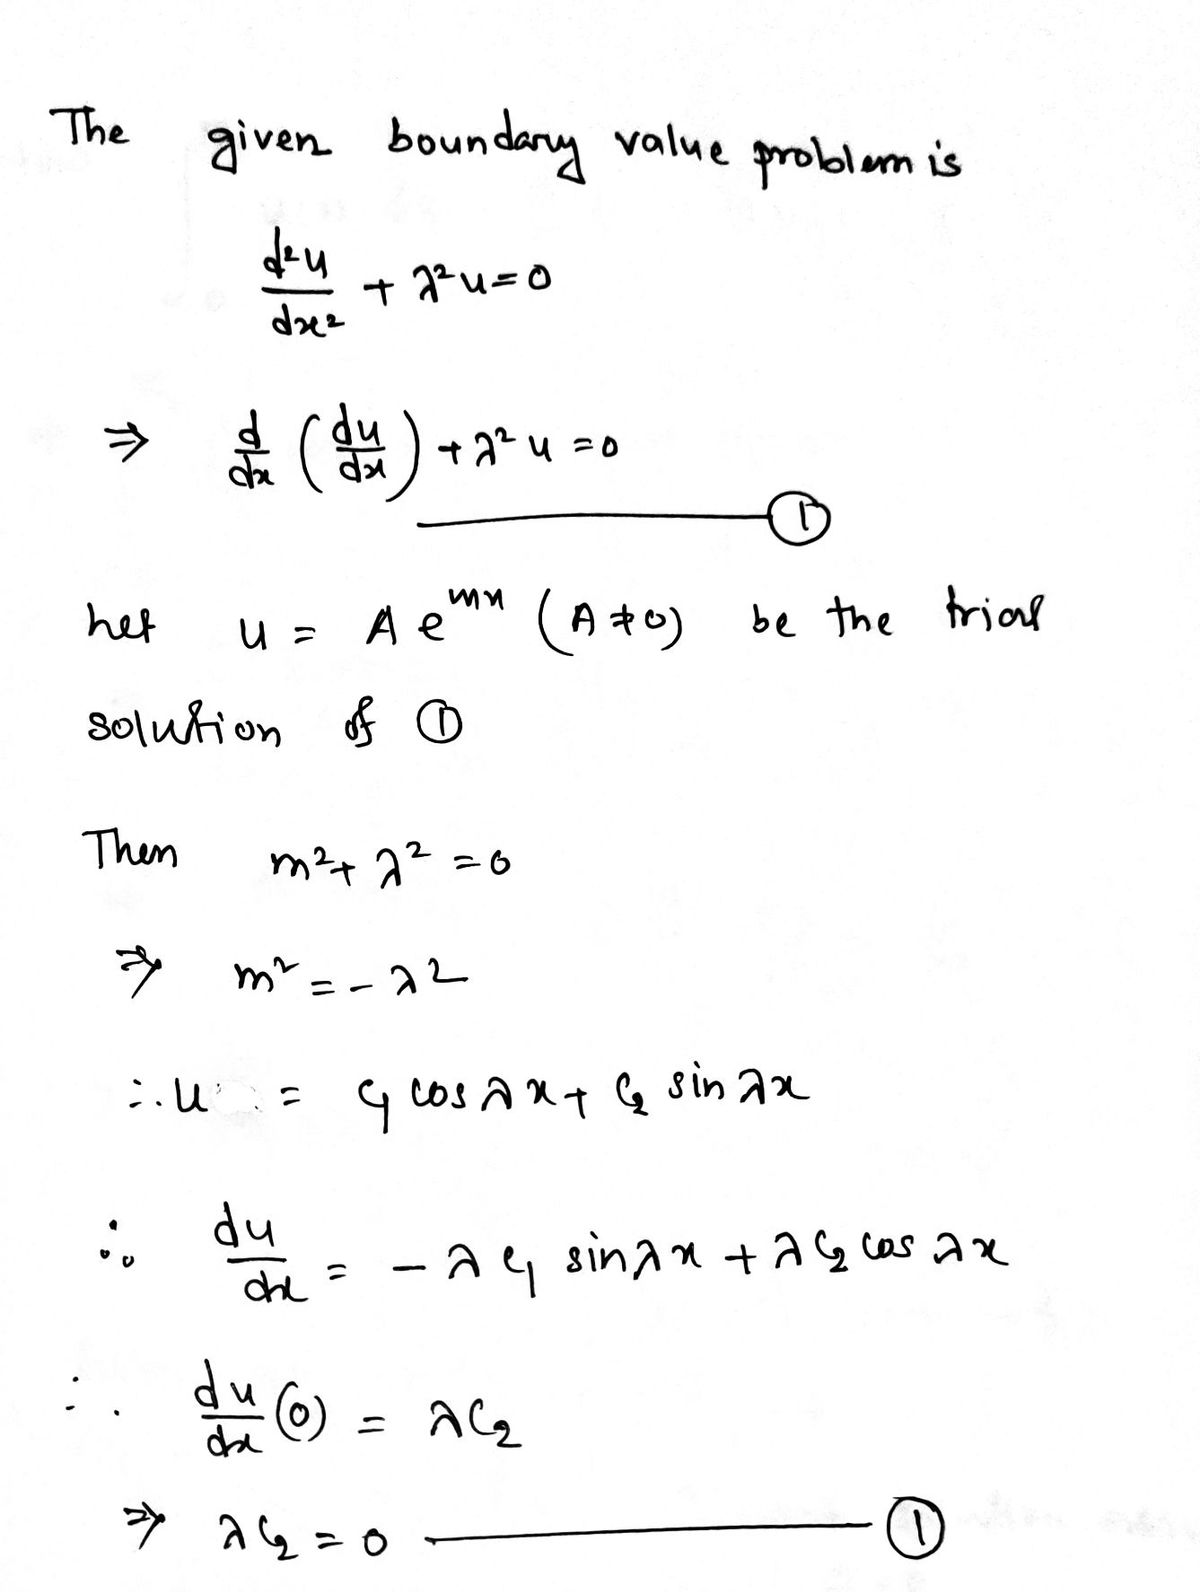 The given boundary value problem is
d²u/dx² + λ²u = 0
⇒ d/dx (du/dx) + λ² u = 0
①
Let u = A e^mx (A ≠ 0) be the trial
solution of ①
Then m² + λ² = 0
⇒ m² = - λ2
∴ u = C₁ cos λx + C₂ sin λx
∴ du/dx = - λ C₁ sin λx + λ C₂ cos λx
∴ du/dx (0) = λC₂
⇒ λC₂ = 0 ①